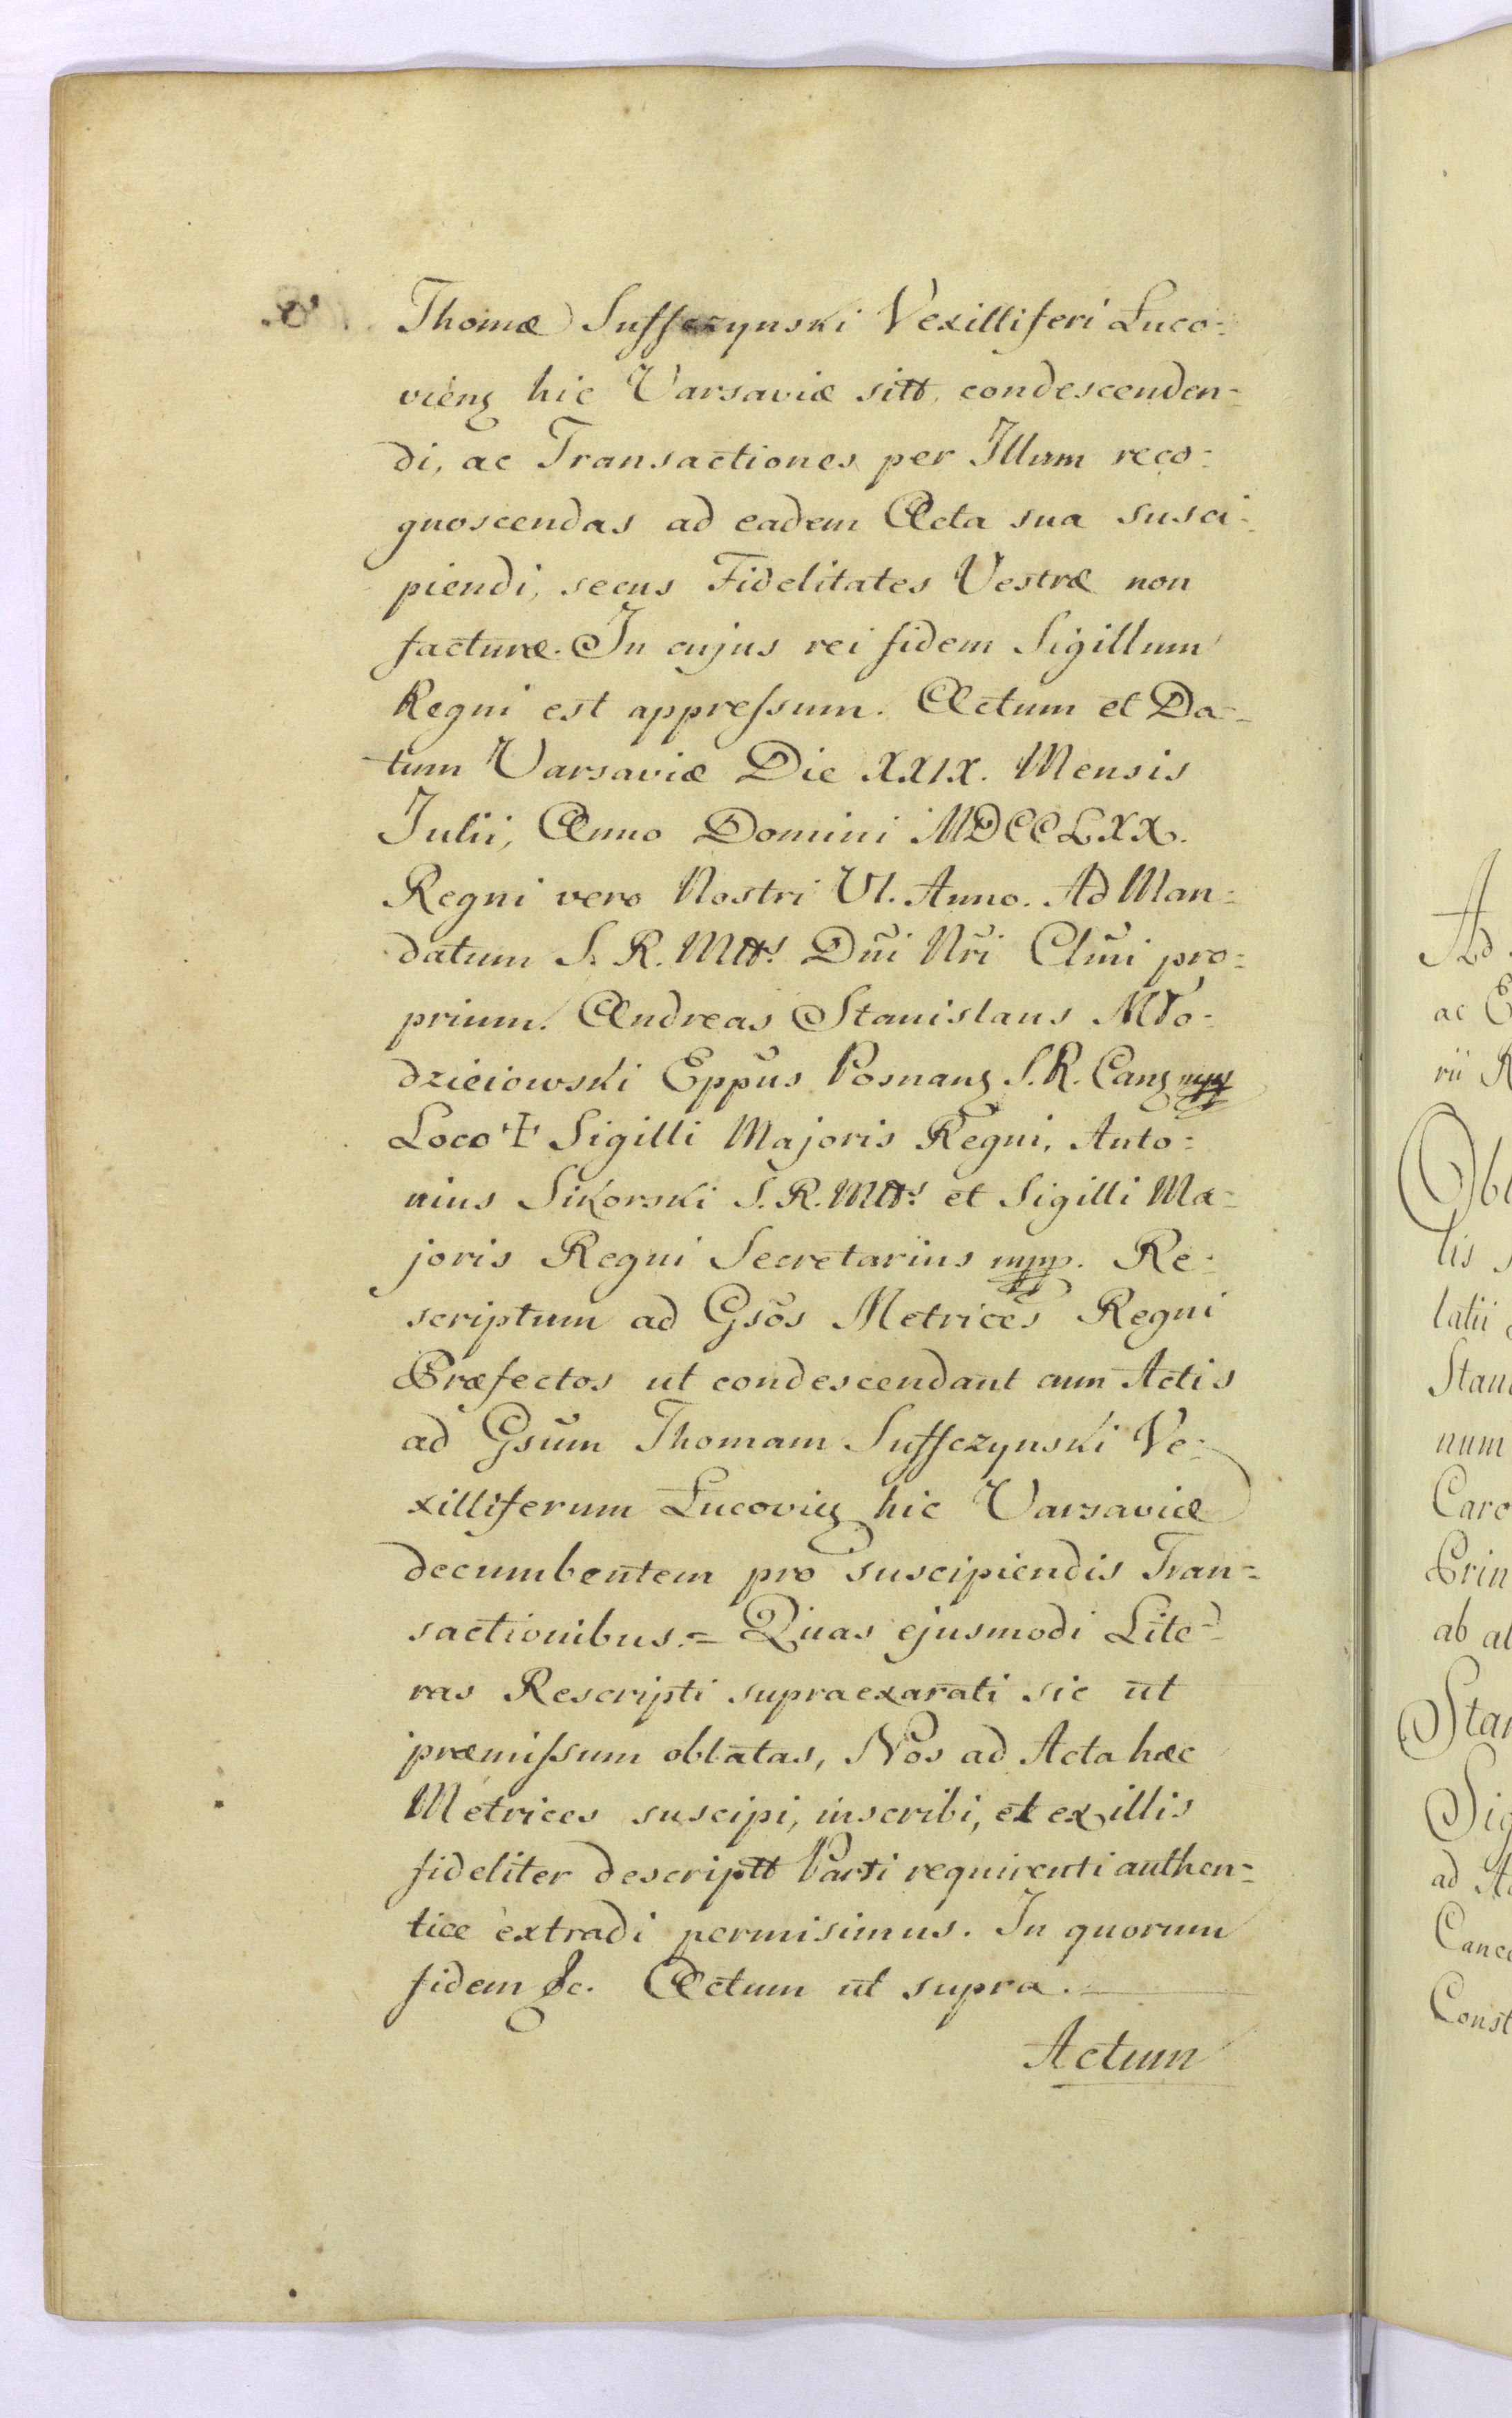 Thomæ Suffczynski Vexilliferi Luco=
vieng hic Varsaviæ sitt, condescenden=
di, ac Transactiones per Illum reco=
gnoscendas ad eadem Acta sua susci=
piendi, secus Fidelitates Vestræ non
facturæ. In cujus rei fidem Sigillum
Regni est appressum. Actum et Da=
tum Varsaviæ Die XXIX. Mensis
Julii, Anno Domini MDCCLXX.
Regni vero Nostri VI. Anno. Ad Man=
datum S. R. Mtt. Dñi Nri Clmi pro=
prium. Andreas Stanislaus Mło=
dzieiowski Eppus Posnang S. R. Cang mpp
Loco ✝ Sigilli Majoris Regni, Anto=
nius Sikorski S. R. Mtt. et Sigilli Ma=
joris Regni Secretarius mpp. Re=
scriptum ad Gsos Metrices Regni
Præfectos ut condescendant cum Actis
ad Gsum Thomam Suffczynski Ve=
xilliferum Lucovieg hic Varsaviæ
decumbentem pro suscipiendis Tran=
sactionibus.= Quas ejusmodi Lite=
ras Rescripti supraexarati sic ut
præmissum oblatas, Nos ad Acta hæc
Metrices suscipi, inscribi, et ex illis
fideliter descriptt Parti requirenti authen=
tice extradi permisimus. In quorum
fidem &c. Actum ut supra.
Actum
Ad
ac
rii
Obl
lis
latii
Stan
num
Caro
Prin
ab al
Sta
Sig
ad
Canc
Const